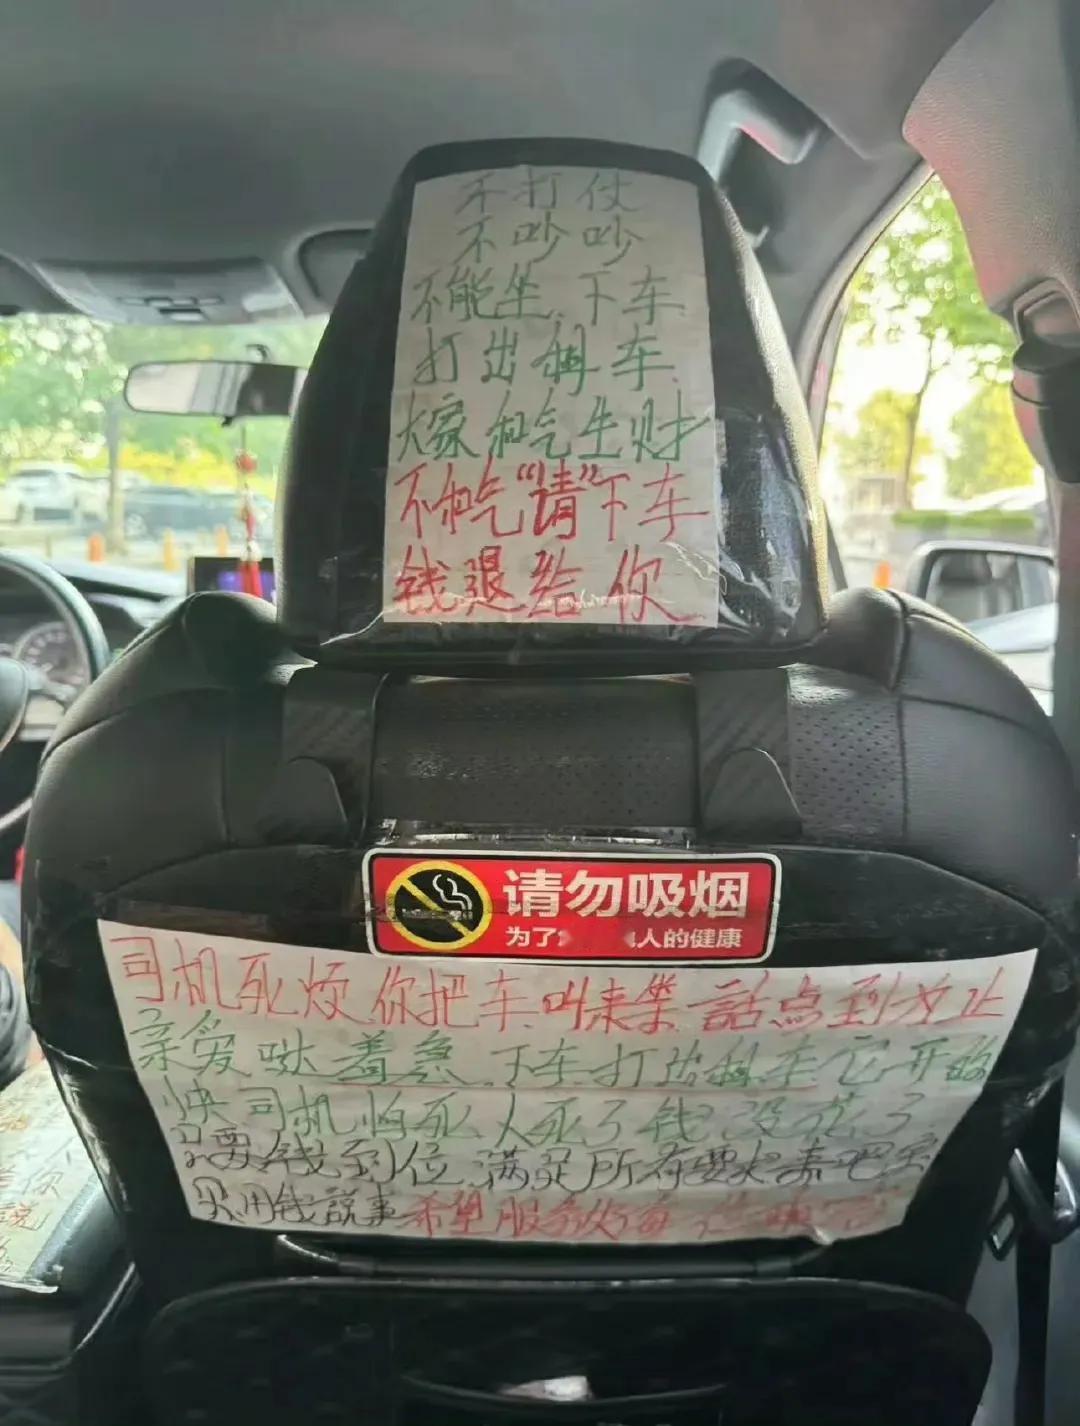 不打仗
不吵吵
不能坐.下车
打出租车
大家和气生财
不和气“请”下车
钱退给你
请勿吸烟
为了 人的健康
司机死烦你把车叫来墬 話点到为止
亲爱哒着急下车打出租车它开的
快司机怕死人死了钱没花了
只要钱到位满足所有要求来吧
只用钱説事希望服务好每